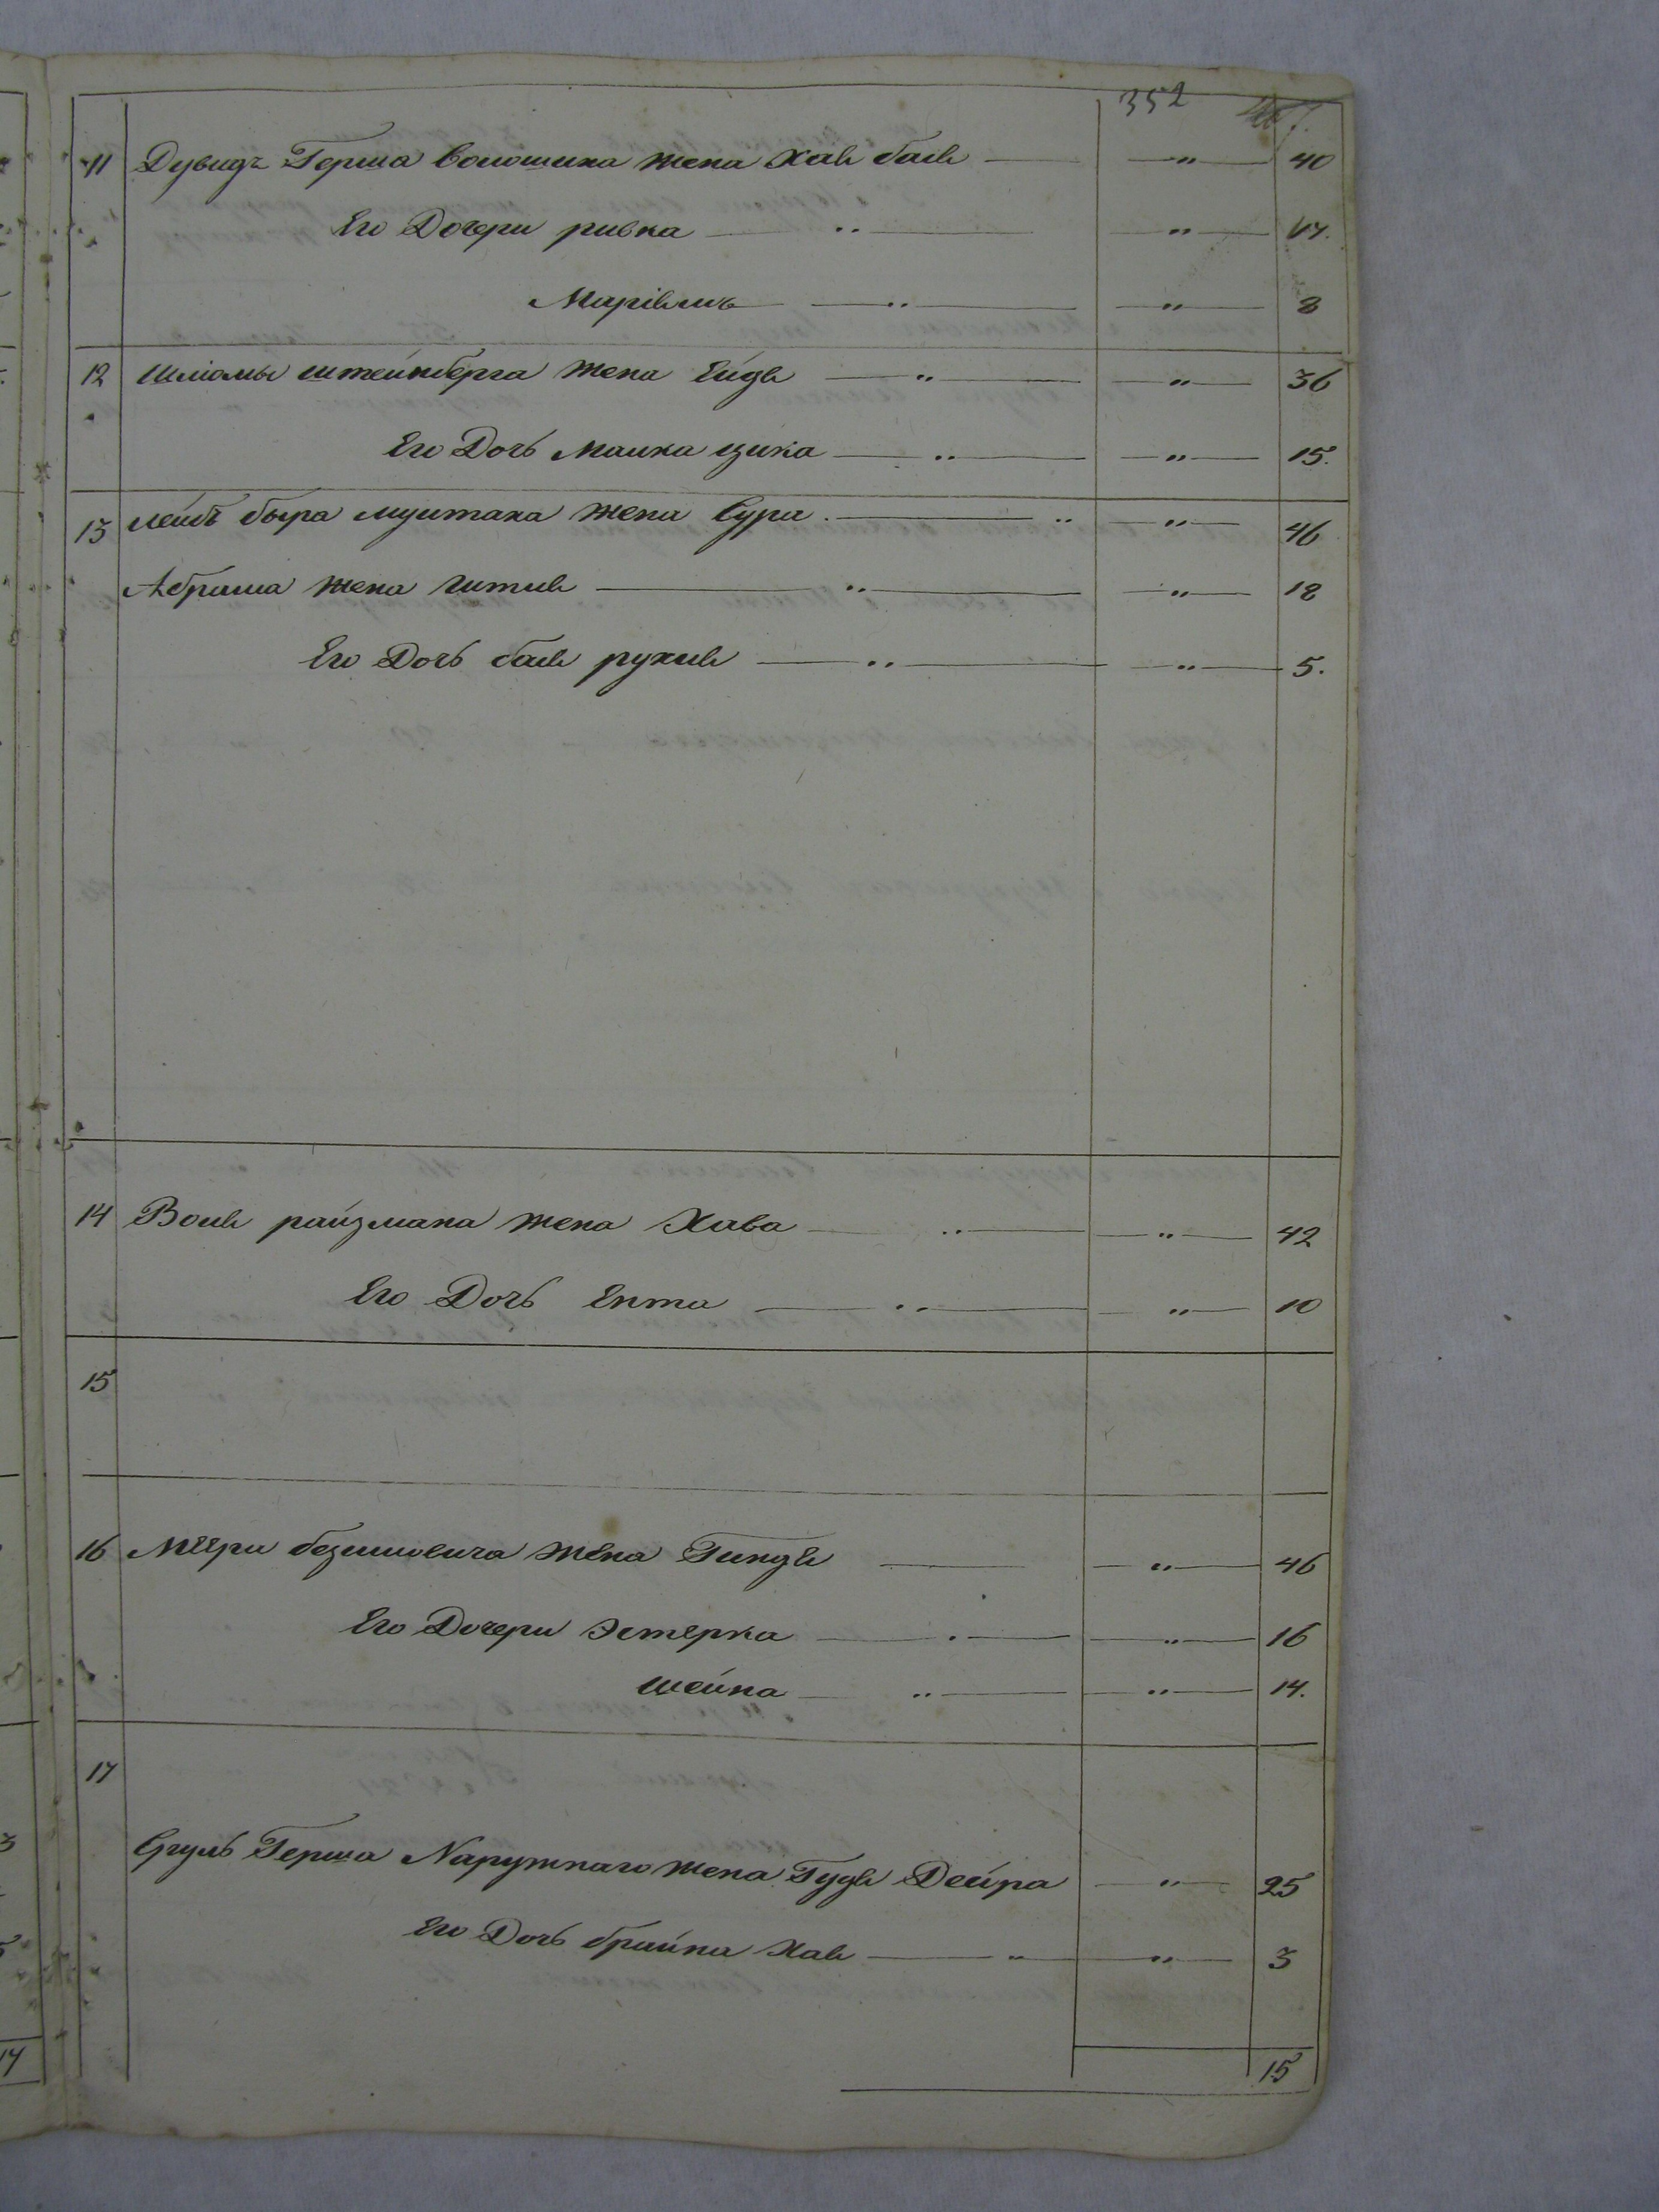 352
11 Дувидъ Герша Волошина жена Хая бася — " — 40
Его Дочери ривка — " — 17.
Маріямъ — " — 8
12 Шліомы штейнберга жена Ейдя — " — 36
Его Дочь Маика цика — " — 15.
13 лейбъ бера мушака жена Сура — " — 46
Абрама жена гития — " — 18
Его Дочь бася рухля — " — 5.
14 Воля райзмана жена Хава — " — 42
Его Дочь Ента — " — 10
15
16 Меера жена Гиндя — " — 46
Его Дочери Эстерка — " — 16
шейна — " — 14.
17
Сруль Герша Наружнаго жена Гудя Дейра — " — 25
Его Дочь брайна Хая — " — 3
15